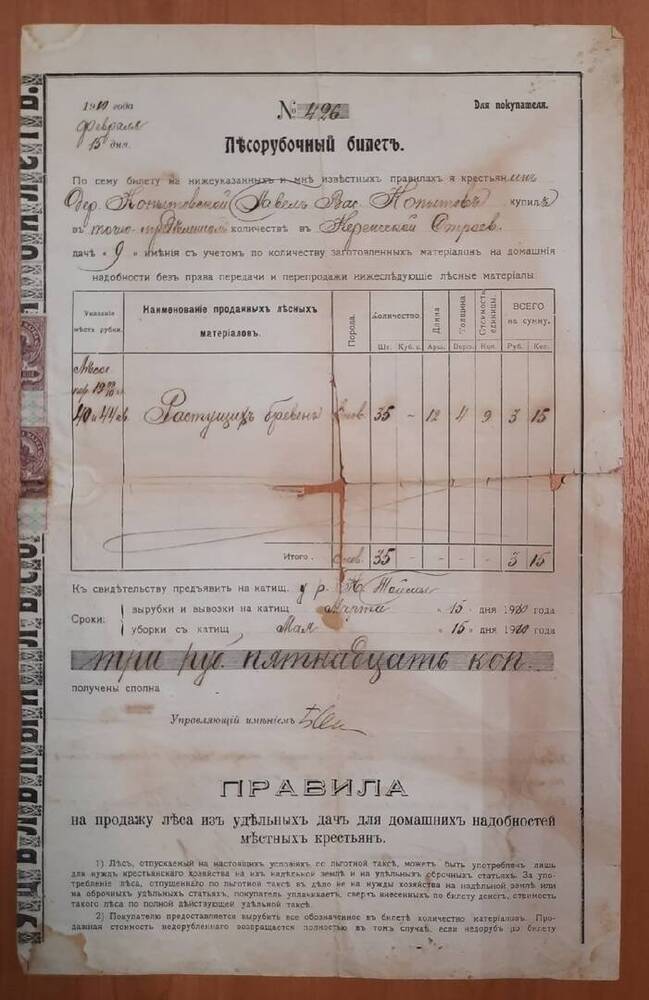 1910 года № 426 Для покупателя.
февраля
15 дня.
Лѣсорубочный билетъ.
По сему билету на нижеуказанныхъ и мнѣ извѣстныхъ правилахъ я крестьянинъ
дер. Копытовской Павелъ Вас. Копытовъ купилъ
въ точно количествѣ въ Керенской
дачѣ „9“ имѣнія съ учетомъ по количеству заготовленныхъ матеріаловъ на домашнія
надобности безъ права передачи и перепродажи нижеслѣдующіе лѣсные матеріалы
Указаніе мѣстъ рубки. Наименованіе проданныхъ лѣсныхъ матеріаловъ. Порода. Количество. Длина Толщина Стоимость единицы. ВСЕГО на сумму.
Шт. Куб. с. Арш. Верш. Коп. Руб. Коп.
40 и 44 кв. Растущихъ бревенъ 35 - 12 4 9 3 15
Итого. 35 - - - - 3 15
Къ свидѣтельству предъявить на катищ. у р.
Сроки: вырубки и вывозки на катищ. Марта „15“ дня 1910 года
уборки съ катищ Мая „15“ дня 1910 года
три руб. пятнадцать коп.
получены сполна
Управляющій имѣніемъ
ПРАВИЛА
на продажу лѣса изъ удѣльныхъ дачъ для домашнихъ надобностей
мѣстныхъ крестьянъ.
1) Лѣсъ, отпускаемый на настоящихъ условіяхъ по льготной таксѣ, можетъ быть употребленъ лишь
для нуждъ крестьянскаго хозяйства на ихъ надѣльной землѣ и на удѣльныхъ оброчныхъ статьяхъ. За упо-
требленіе лѣса, отпущеннаго по льготной таксѣ въ дѣло не на нужды хозяйства на надѣльной землѣ или
на оброчныхъ удѣльныхъ статьяхъ, покупатель уплачиваетъ, сверхъ внесенныхъ по билету денегъ, стоимость
такого лѣса по полной дѣйствующей удѣльной таксѣ.
2) Покупателю предоставляется вырубить все обозначенное въ билетѣ количество матеріаловъ. Про-
дажная стоимость недорубленнаго возвращается полностью въ томъ случаѣ, если недорубъ по билету